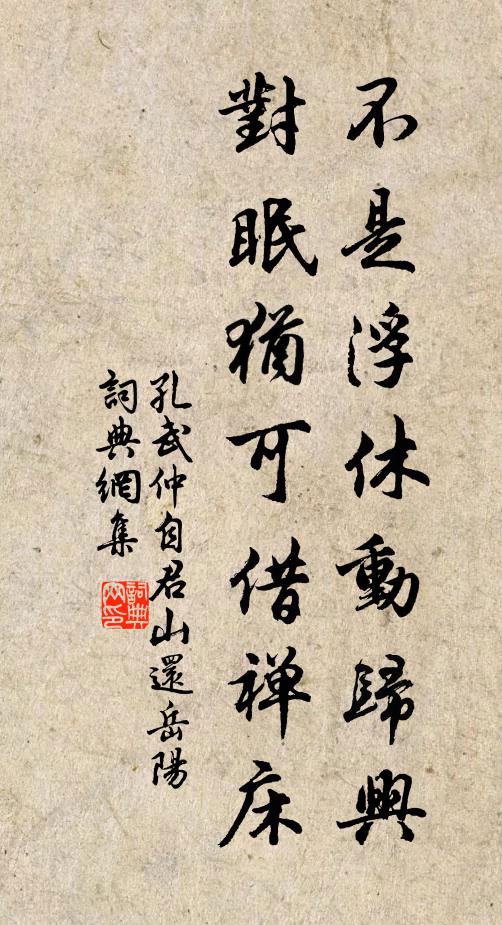 不是浮休動歸興
對眠猶可借禅床
孔武仲自君山還岳陽
詞典網集
詞典
网印